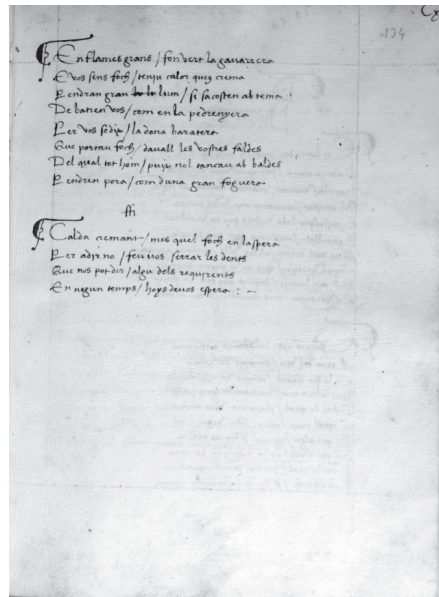 134
En flames grans / fon vert la gavarrera
E vos sens foch / teniu calor queus crema
Pendran gran lum / si sacosten ab tema
De batien vos / com en la pedrenyera
Per vos se diu / la dona baratera
Que portau foch / davall les vostres faldes
Del qual tot hom / puix nol tancau ab baldes
Pendren pora / com duna gran foguera
ffi
Calda cremant / mes quel foch en laspera
Per a dir no / feu vos serrar les dents
Que nos pot dir / algu dels requirents
En negun temps / hoys de vos espera : ~